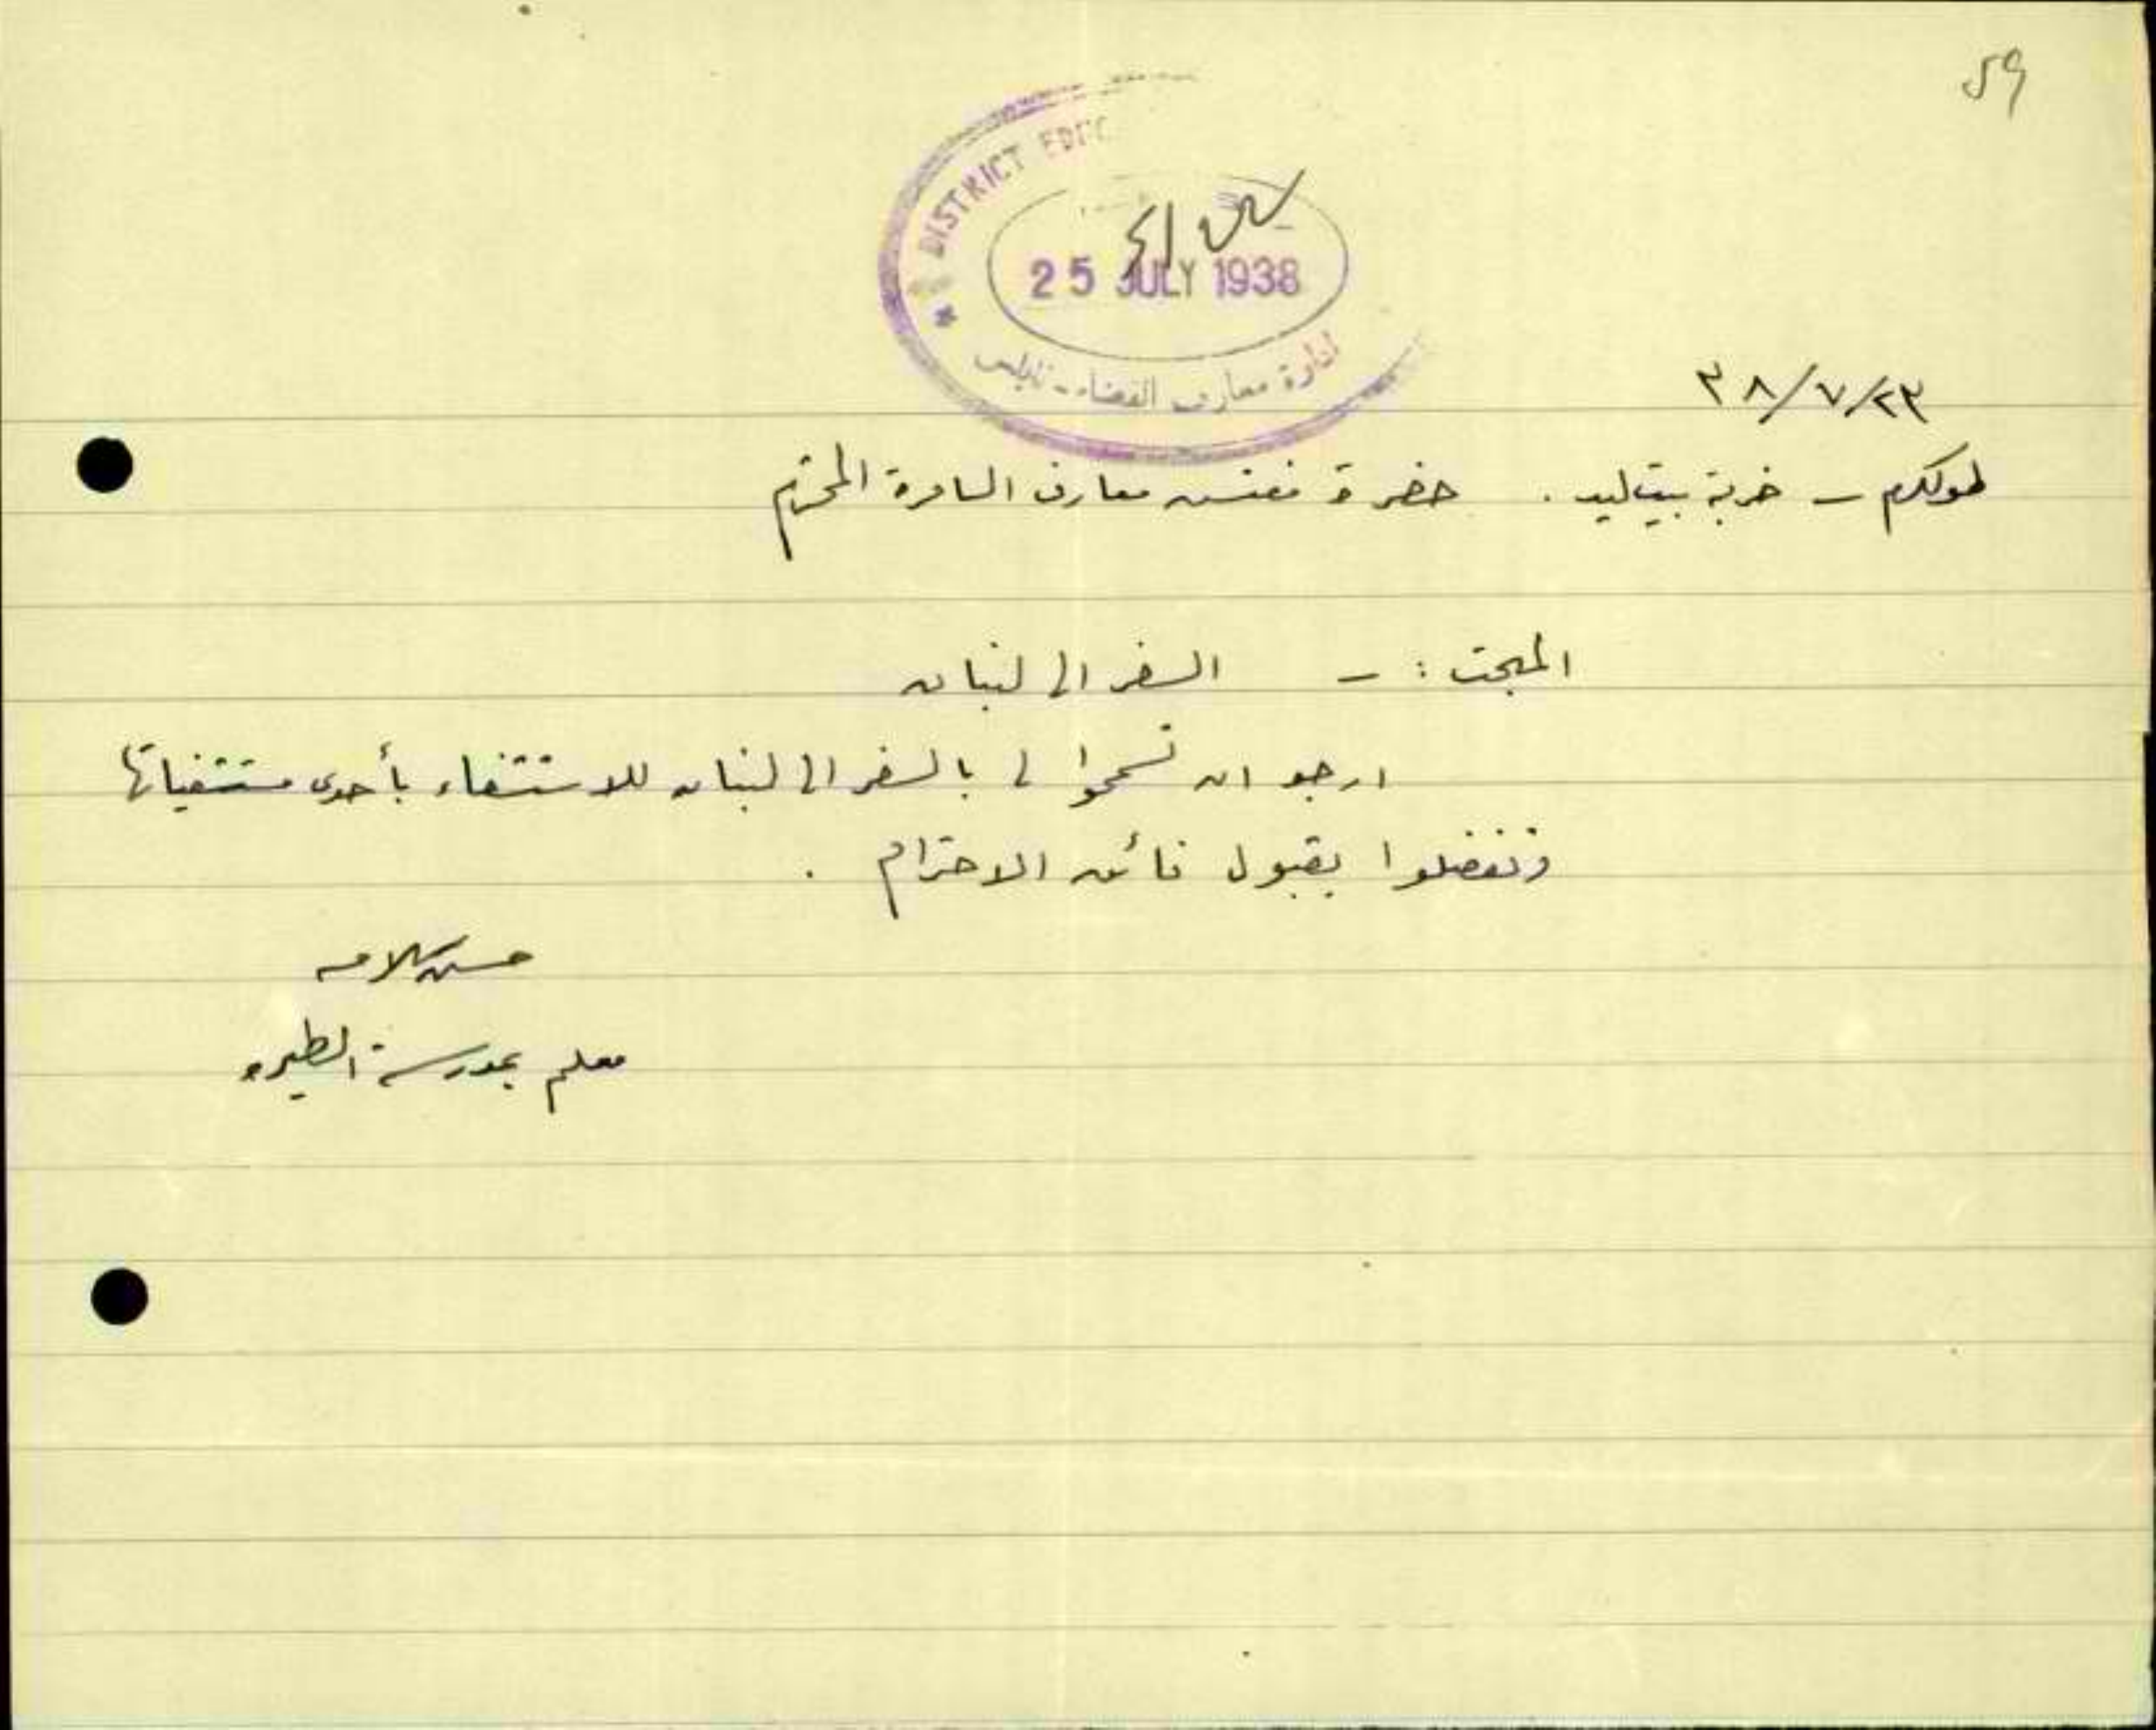 59
DISTRICT EDUC
25 JULY 1938
ادارة معارف القضاء - نابلس
٢٣/٧/٣٨
طولكرم - خربة بيت ليد . حضرة مفتش معارف السامرة المحترم
المبحث : - السفر الى لبنان
ارجو ان تسمحوا لي بالسفر الى لبنان للاستشفاء بأحدى مستشفياتها
وتفضلوا بقبول فائق الاحترام .
حسن سلامه
معلم بمدرسة الطيره